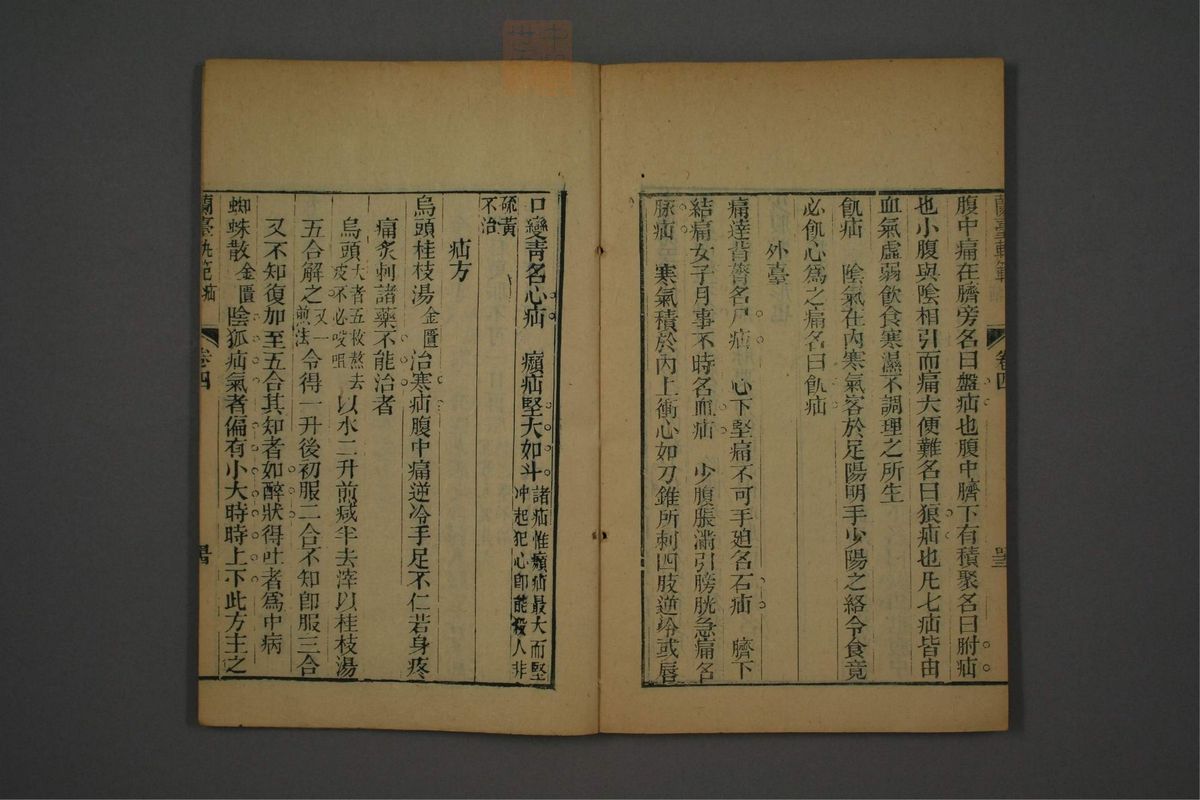 蘭臺軌範 疝 卷四 四三
腹中痛在臍旁名曰盤疝也腹中臍下有積聚名曰胕疝
也小腹與陰相引而痛大便難名曰狼疝也凡七疝皆由
血氣虛弱飲食寒濕不調理之所生
飢疝 陰氣在內寒氣客於足陽明手少陽之絡令食竟
必飢心爲之痛名曰飢疝
外臺
痛達背膂名尸疝 心下堅痛不可手廹名石疝 臍下
結痛女子月事不時名血疝 少腹脹滿引膀胱急痛名
脉疝 寒氣積於內上衝心如刀錐所刺四肢逆冷或唇
口變青名心疝 㿗疝堅大如斗諸疝惟㿗疝最大而堅冲起犯心卽能殺人非
硫黃不治
疝方
烏頭桂枝湯金匱 治寒疝腹中痛逆冷手足不仁若身疼
痛炙刺諸藥不能治者
烏頭大者五枚熬去皮不必㕮咀 以水二升煎減半去滓以桂枝湯
五合解之又一前法 令得一升後初服二合不知卽服三合
又不知復加至五合其知者如醉狀得吐者爲中病
蜘蛛散金匱 陰狐疝氣者偏有小大時時上下此方主之
蘭臺軌範 疝 卷四 四四